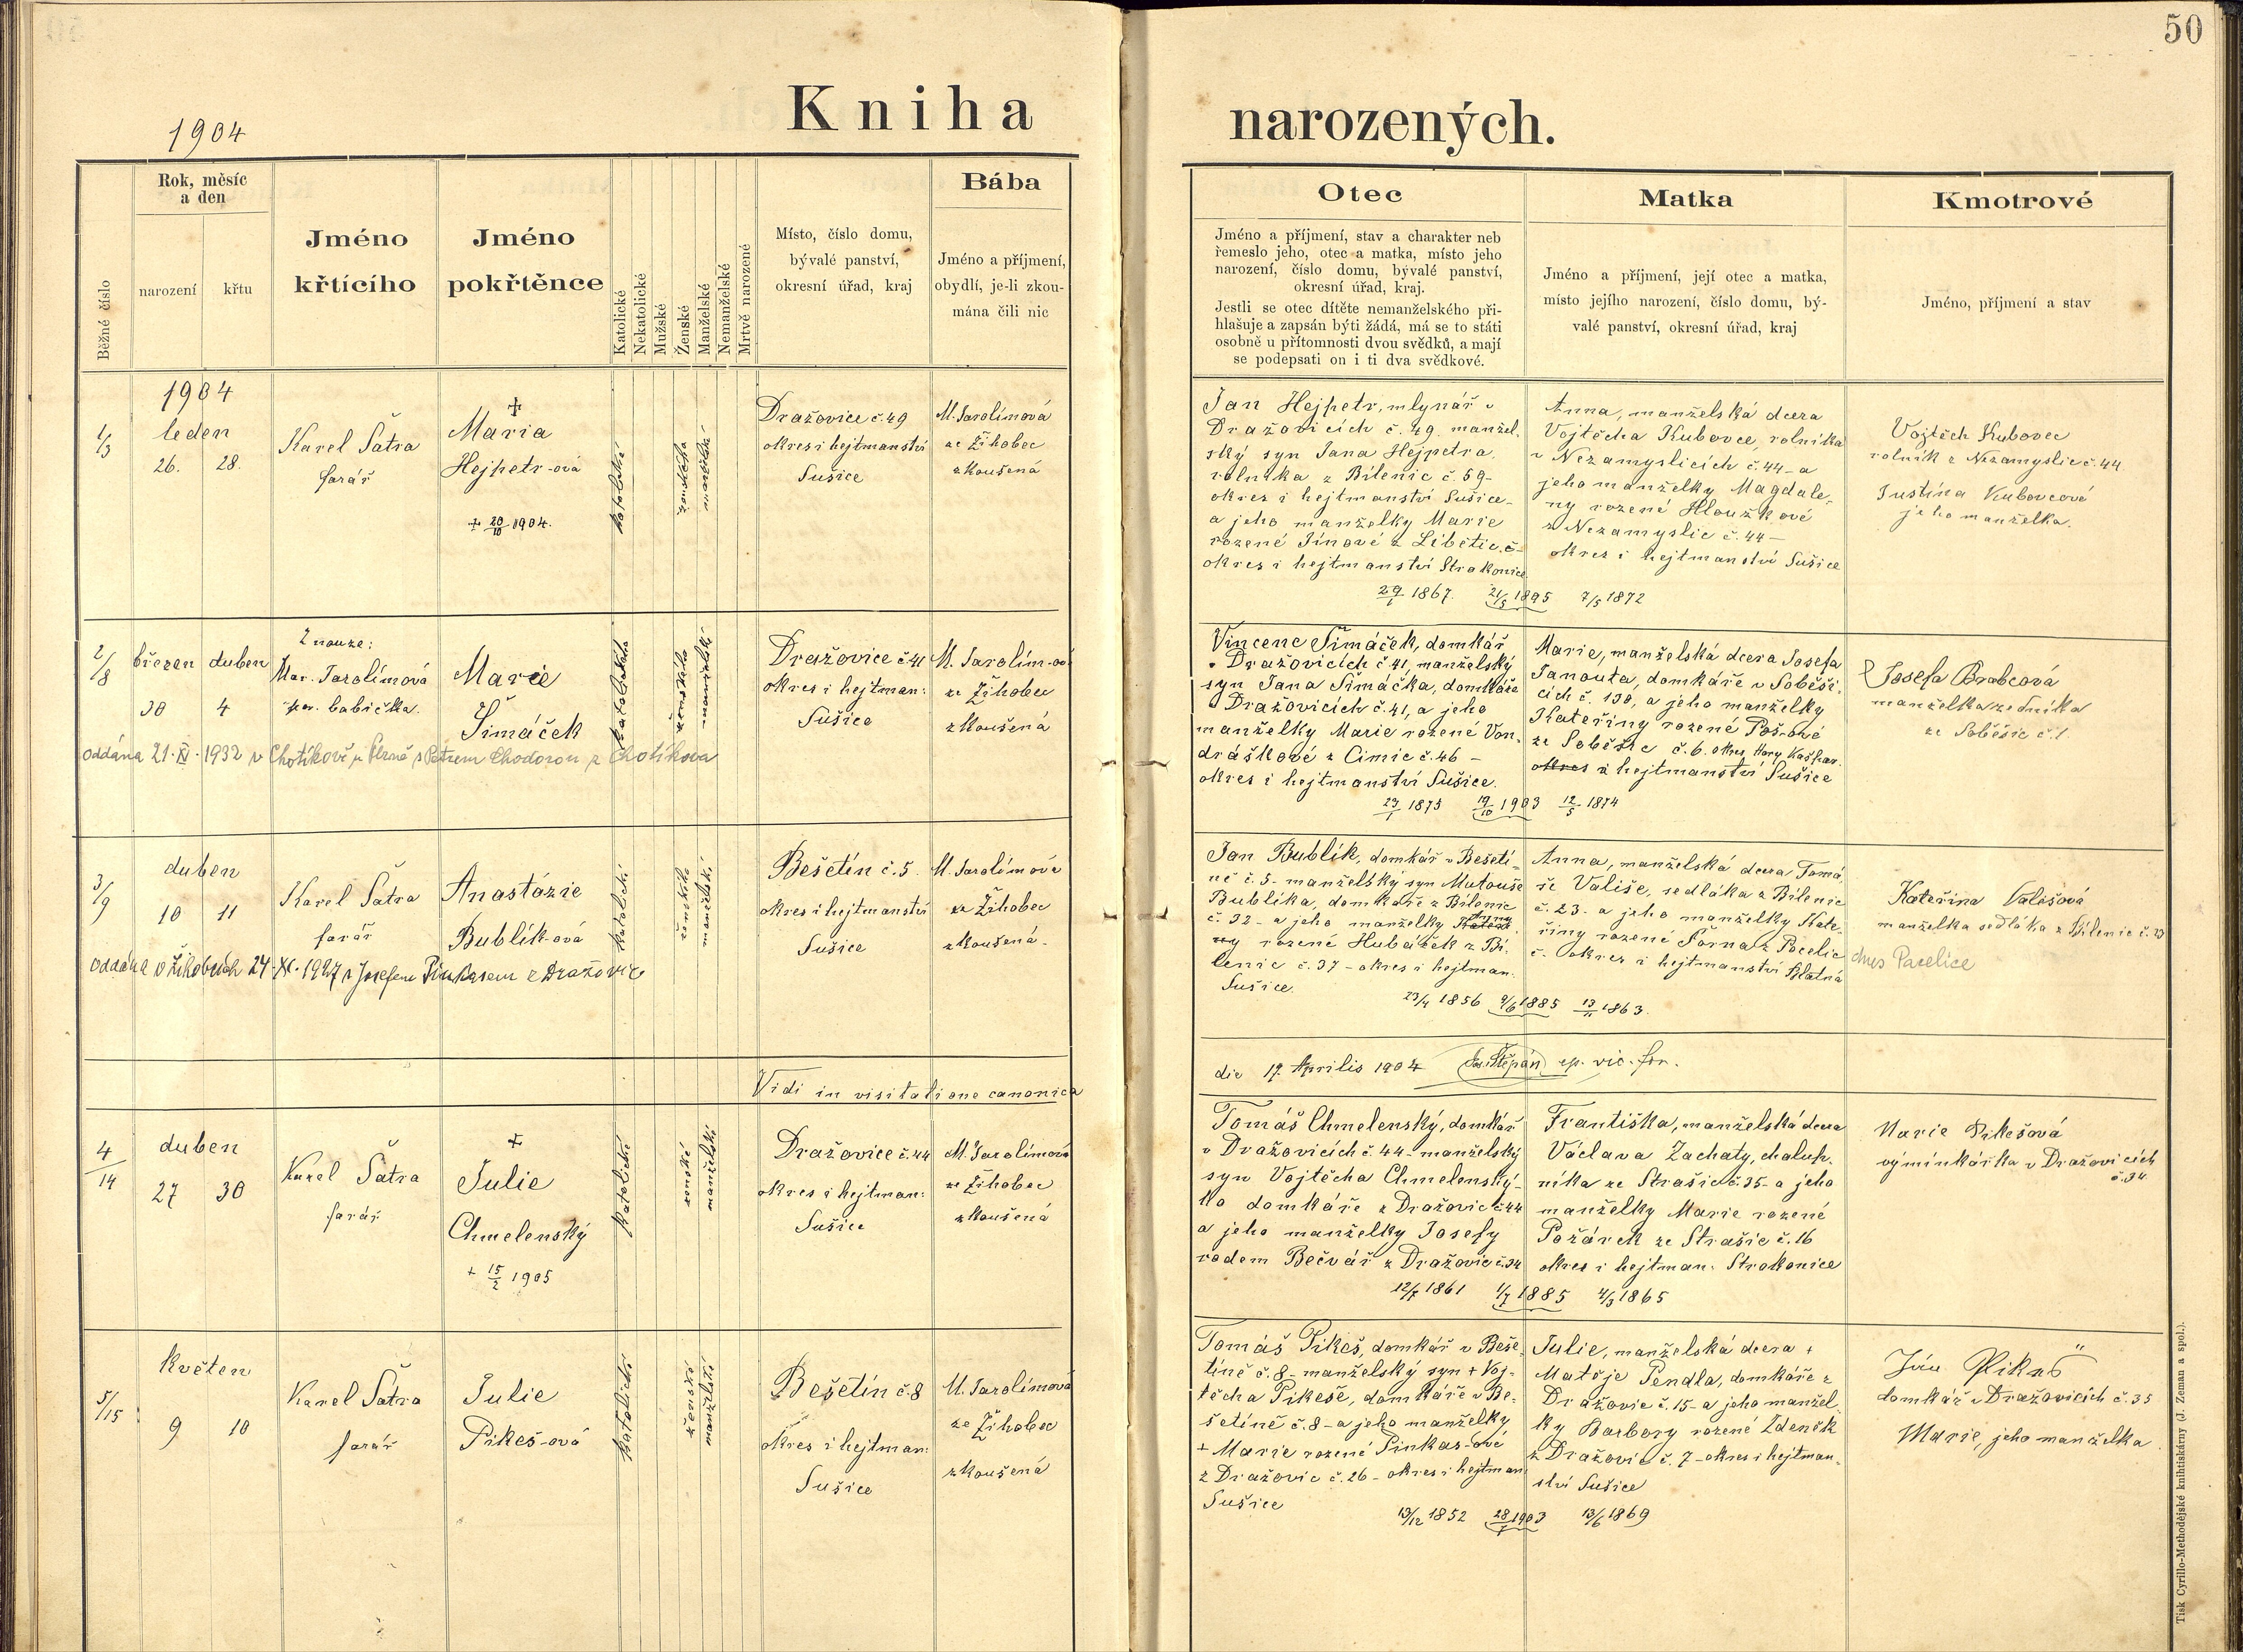 50
Kniha narozených.
1904
Běžné číslo
Rok, měsíc
a den
narození
křtu
Jméno
křtícího
Jméno
pokřtěnce
Katolické
Nekatolické
Mužské
Ženské
Manželské
Nemanželské
Mrtvě narozené
Místo, číslo domu,
bývalé panství,
okresní úřad, kraj
Bába
Jméno a příjmení,
obydlí, je-li zkou-
mána čili nic
Otec
Jméno a příjmení, stav a charakter neb
řemeslo jeho, otec a matka, místo jeho
narození, číslo domu, bývalé panství,
okresní úřad, kraj.
Jestli se otec dítěte nemanželského při-
hlašuje a zapsán býti žádá, má se to státi
osobně u přítomnosti dvou svědků, a mají
se podepsati on i ti dva svědkové.
Matka
Jméno a příjmení, její otec a matka,
místo jejího narození, číslo domu, bý-
valé panství, okresní úřad, kraj
Kmotrové
Jméno, příjmení a stav
1904
1/3
leden
26. 28.
Karel Šatra
farář
+
Maria
Hejpetr-ová
+ 20/10 1904.
katolické
ženského
manželské
Dražovice č. 49
okres i hejtmanství
Sušice
M. Jarolímová
ze Žihobec
zkoušená
Jan Hejpetr, mlynář v
Dražovicích č. 49. manžel.
ský syn Jana Hejpetra,
rolníka z Bílenic č. 59-
okres i hejtmanství Sušice-
a jeho manželky Marie
rozené Jínové z Libětic č-
okres i hejtmanství Strakonice
Anna, manželská dcera
Vojtěcha Kubovce, rolníka
v Nezamyslicích č. 44- a
jeho manželky Magdale-
ny rozené Hloužkové
z Nezamyslic č. 44-
okres i hejtmanství Sušice
29/1 1867. 21/5 1895 7/5 1872
Vojtěch Kubovec
rolník z Nezamyslic č. 44
Justina Kubovcová
jeho manželka.
2/8
březen duben
30 4
Z nouze:
Mar. Jarolímová
por. babička.
Marie
Šimáček
ženského
manželské
oddána 21. XI. 1932 v Chotíkově u Plzně s Petrem Chodorou z Chotíkova
Dražovice č 41
okres i hejtman:
Sušice
M. Jarolím-ová
ze Žihobec
zkoušená
Vincenc Šimáček, domkář
v Dražovicích č. 41, manželský
syn Jana Šimáčka, domkáře
v Dražovicích č. 41, a jeho
manželky Marie rozené Von-
dráškové z Čimic č. 46 -
okres i hejtmanství Sušice.
Marie, manželská dcera Josefa
Janouta, domkáře v Soběši-
cích č. 130, a jeho manželky
Kateřiny rozené Poš-ové
ze Soběšic č. 6. okres Hory Kašpar.
okres a hejtmanství Sušice
23/1 1875 19/10 1903 12/5 1874
Josefa Brabcová
manželka zedníka
ze Soběšic č. 1.
3/9
duben
10 11
Karel Šatra
farář
Anastázie
Bublík-ová
katolické
ženského
manželské
oddána v Žihobcích 24. XI. 1927 s Josefem Pinkasem z Dražovic
Bešetín č. 5.
okres i hejtmanství
Sušice
M. Jarolímová
ze Žihobec
zkoušená.
Jan Bublík, domkář v Bešetí-
ně č. 5- manželský syn Matouše
Bublíka, domkáře z Bílenic
č. 32- a jeho manželky Anny
rozené Hubáček z Bí-
lenic č. 37 - okres i hejtman.
Sušice.
Anna, manželská dcera Tomá-
še Vališe, sedláka z Bílenic
č. 23. a jeho manželky Kate-
řiny rozené Šorna z Pocelic
č. okres i hejtmanství Blatná
dnes Pacelice
23/4 1856 9/6 1885 13/11 1863.
Kateřina Valešová
manželka sedláka z Bílenic č. 23
Vidi in visitatione canonica
die 19. Aprilis 1904 Jos. Štěpán ep. vic. for.
4/14
duben
27 30
Karel Šatra
farář
+
Julie
Chmelenský
+ 15/2 1905
katolické
ženské
manželské
Dražovice č. 44
okres i hejtman:
Sušice
M. Jarolímová
ze Žihobec
zkoušená
Tomáš Chmelenský, domkář
v Dražovicích č. 44- manželský
syn Vojtěcha Chmelenský-
ho domkáře z Dražovic č. 44
a jeho manželky Josefy
rodem Bečvář z Dražovic č. 34
Františka, manželská dcera
Václava Zachaty, chalup-
níka ze Strašic č. 35- a jeho
manželky Marie rozené
Požárek ze Strašic č. 16
okres i hejtman. Strakonice
12/7 1861 1/7 1885 4/3 1865
Marie Pikešová
výminkářka v Dražovicích
č. 34.
5/15
květen
9 10
Karel Šatra
farář
Julie
Pikeš-ová
katolické
ženské
manželské
Bešetín č. 8
okres i hejtman:
Sušice
M. Jarolímová
ze Žihobec
zkoušená
Tomáš Pikeš, domkář v Beše-
tíně č. 8- manželský syn + Voj-
těcha Pikeše, domkáře v Be-
šetíně č. 8- a jeho manželky
+ Marie rozené Pinkas-ové
z Dražovic č. 26 - okres i hejtman
Sušice
Julie, manželská dcera +
Matěje Pendla, domkáře z
Dražovic č. 15- a jeho manžel-
ky Barbory rozené Zdeněk
z Dražovic č. 7 - okres i hejtman-
ství Sušice
13/12 1852 28/7 1903 13/6 1869
Jan Pikeš
domkář v Dražovicích č. 35
Marie, jeho manželka.
Tisk Cyrillo-Methodějské knihtiskárny (J. Zeman a spol.).